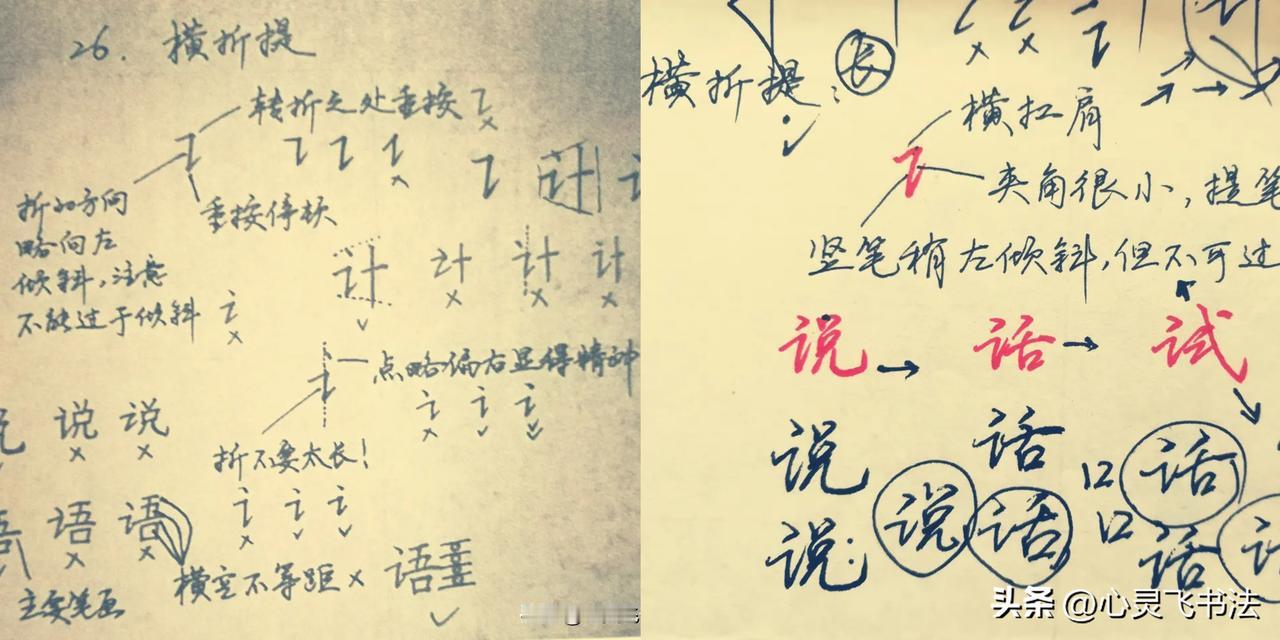 26. 横折提
转折之处重按
重按停顿
折的方向
略向左
倾斜,注意
不能过于倾斜
计 计 计 计
点略偏右显得精神
折不要太长!
说 说 说
语 语 语
横空不等距
语
主要笔画
横折提:
长
横扛肩
夹角很小,提笔
竖笔稍左倾斜,但不可过
说 → 话 → 试
说 话 口 话
说 说 话 口 话
头条 @心灵飞书法